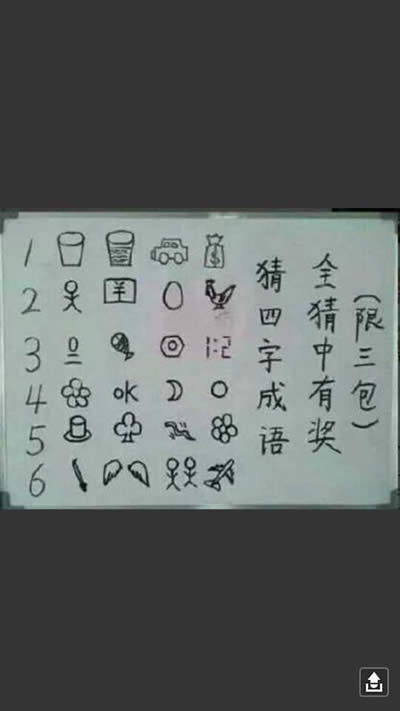 1
2 羊
3 1:2
4 OK
5
6
猜四字成语
全猜中有奖
(限三包)